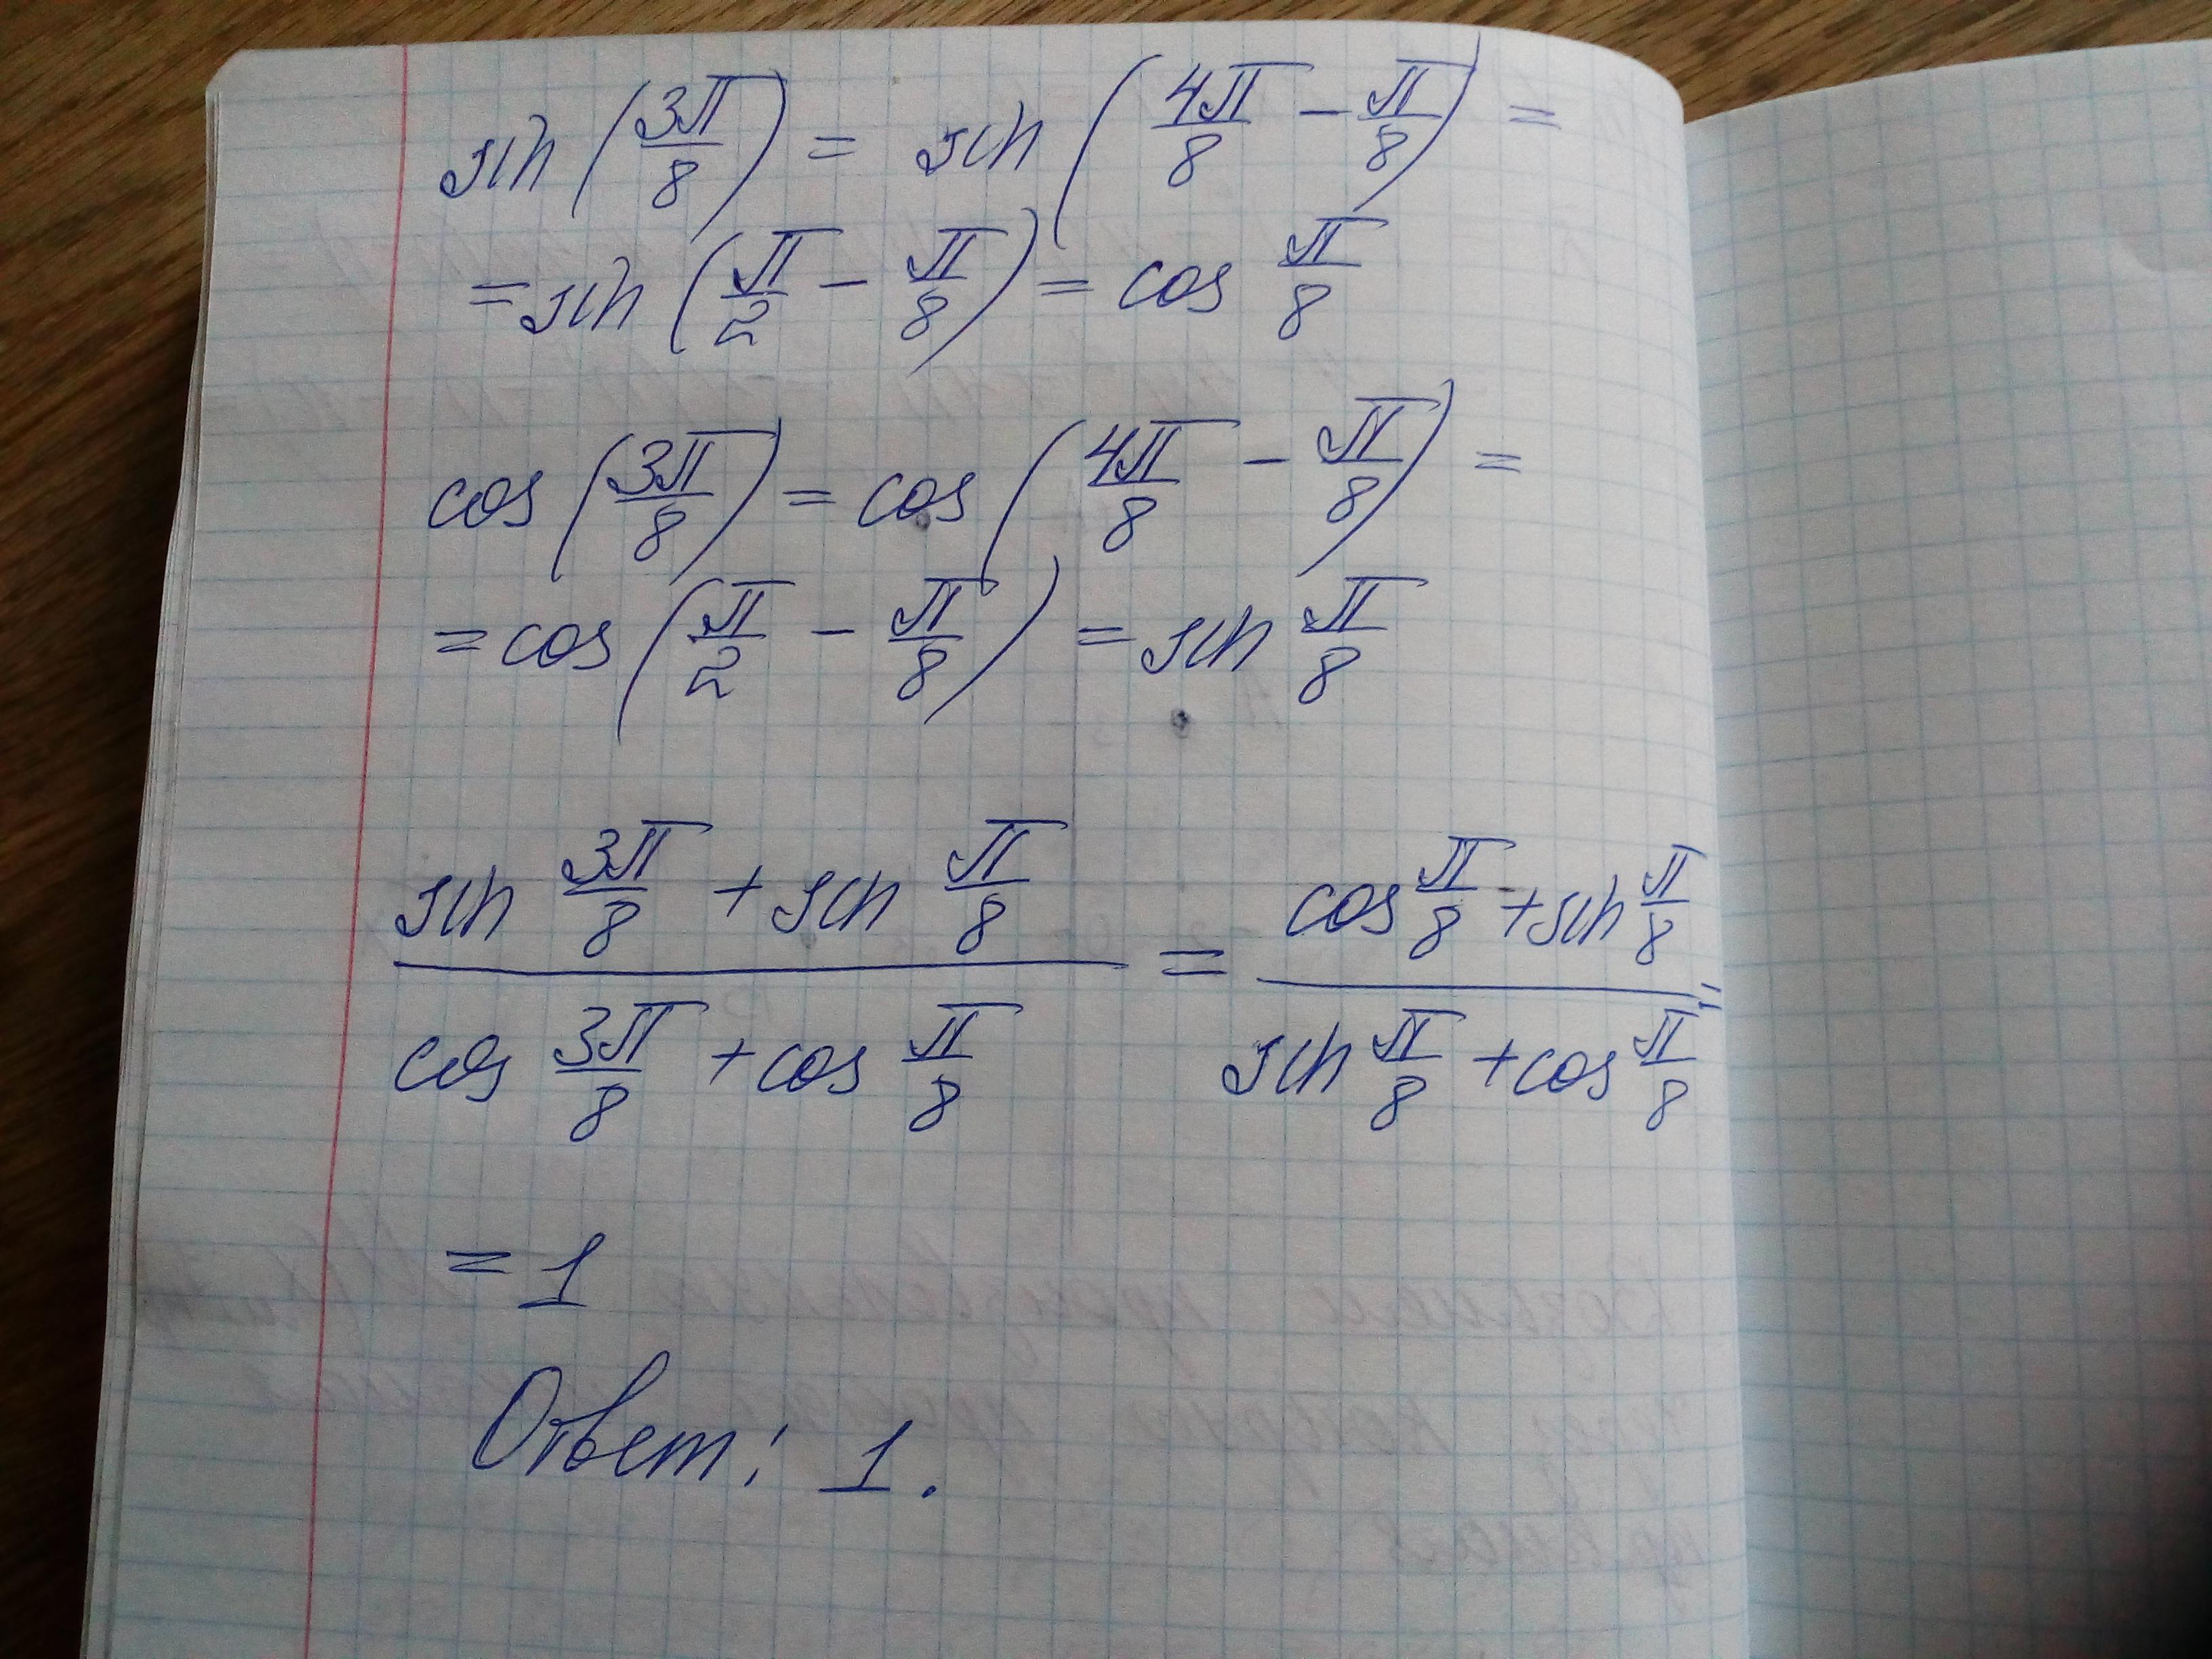 sin (3π/8) = sin (4π/8 − π/8) =
= sin (π/2 − π/8) = cos π/8
cos (3π/8) = cos (4π/8 − π/8) =
= cos (π/2 − π/8) = sin π/8
(sin 3π/8 + sin π/8)/(cos 3π/8 + cos π/8) = (cos π/8 + sin π/8)/(sin π/8 + cos π/8) =
= 1
Ответ: 1.